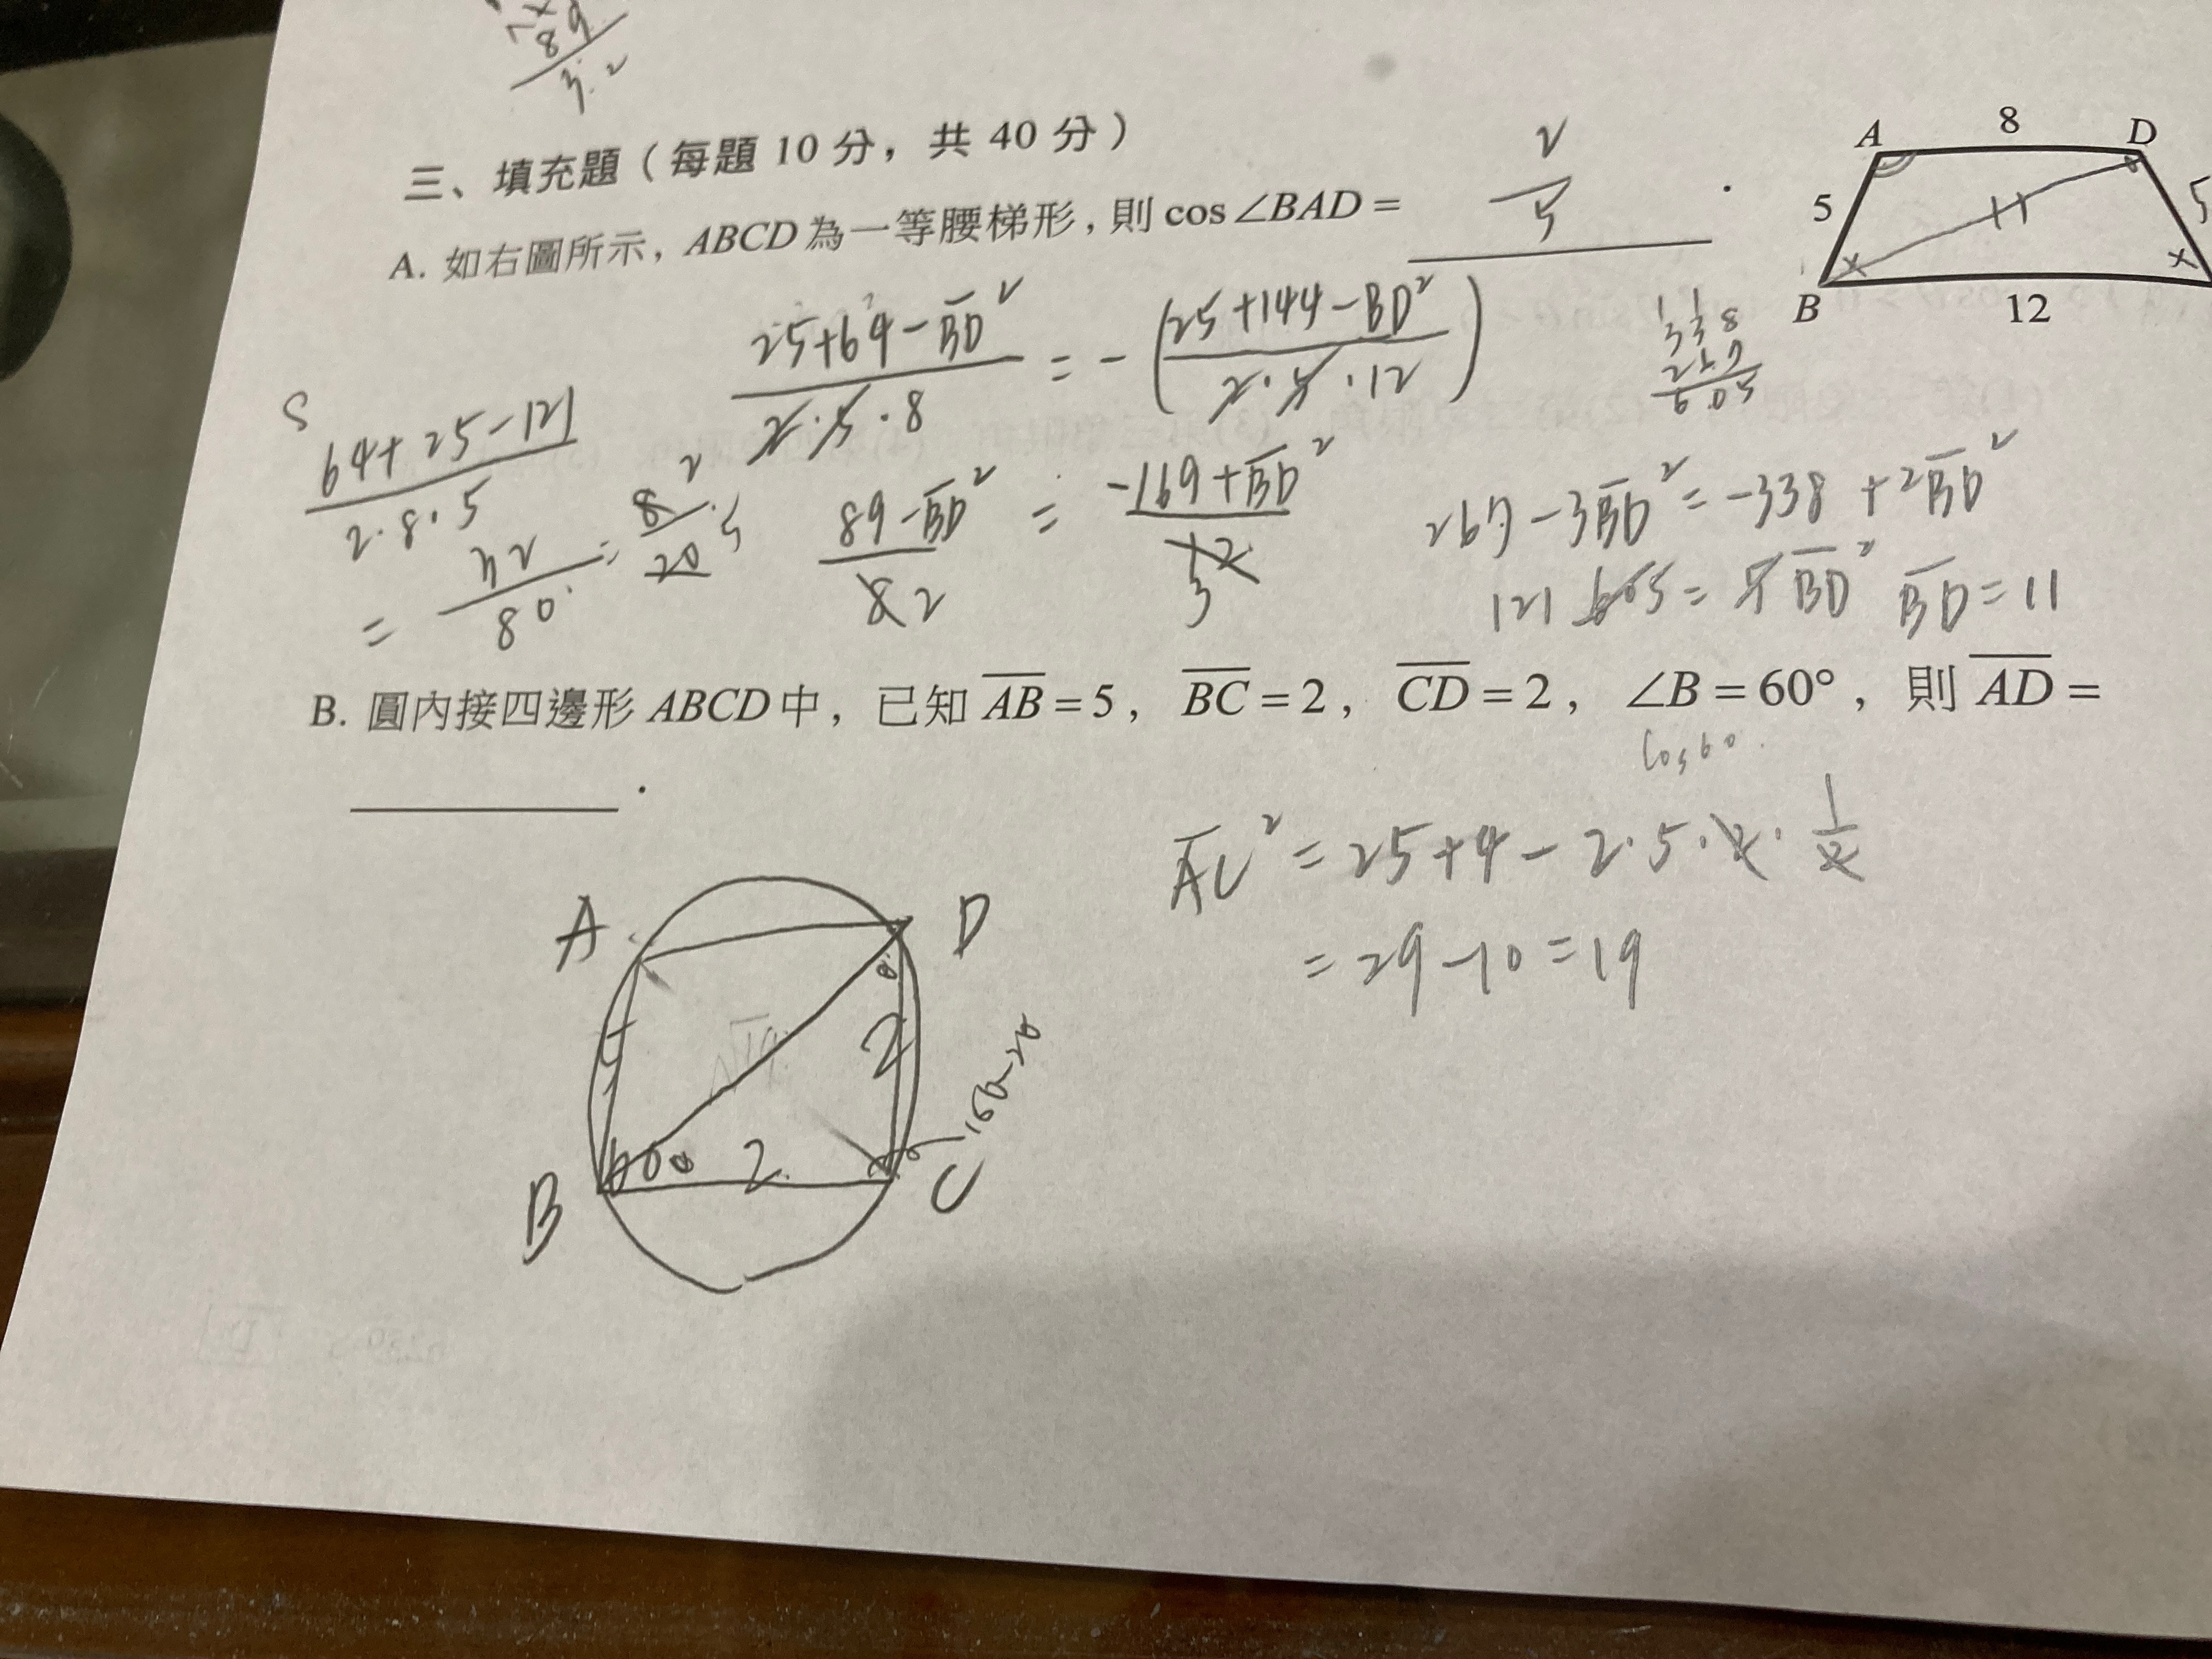 89
3.2
三、填充題（每題 10 分，共 40 分）
A. 如右圖所示，ABCD 為一等腰梯形，則 cos∠BAD = 2/5 .
A 8 D
5 5
B 12
(25+64-BD²)/(2·5·8) = -((25+144-BD²)/(2·5·12))
338
267
605
(64+25-121)/(2·8·5)
= 32/80 = 8/20 2 5
(89-BD²)/8 2 = (-169+BD²)/12 3
267-3BD² = -338+2BD²
121 605 = 5BD² BD = 11
B. 圓內接四邊形 ABCD 中，已知 AB = 5，BC = 2，CD = 2，∠B = 60°，則 AD =
.
cos60
AC² = 25+4-2·5·2·1/2
= 29-10 = 19
A D
5 √19 2
B 60° 2 C